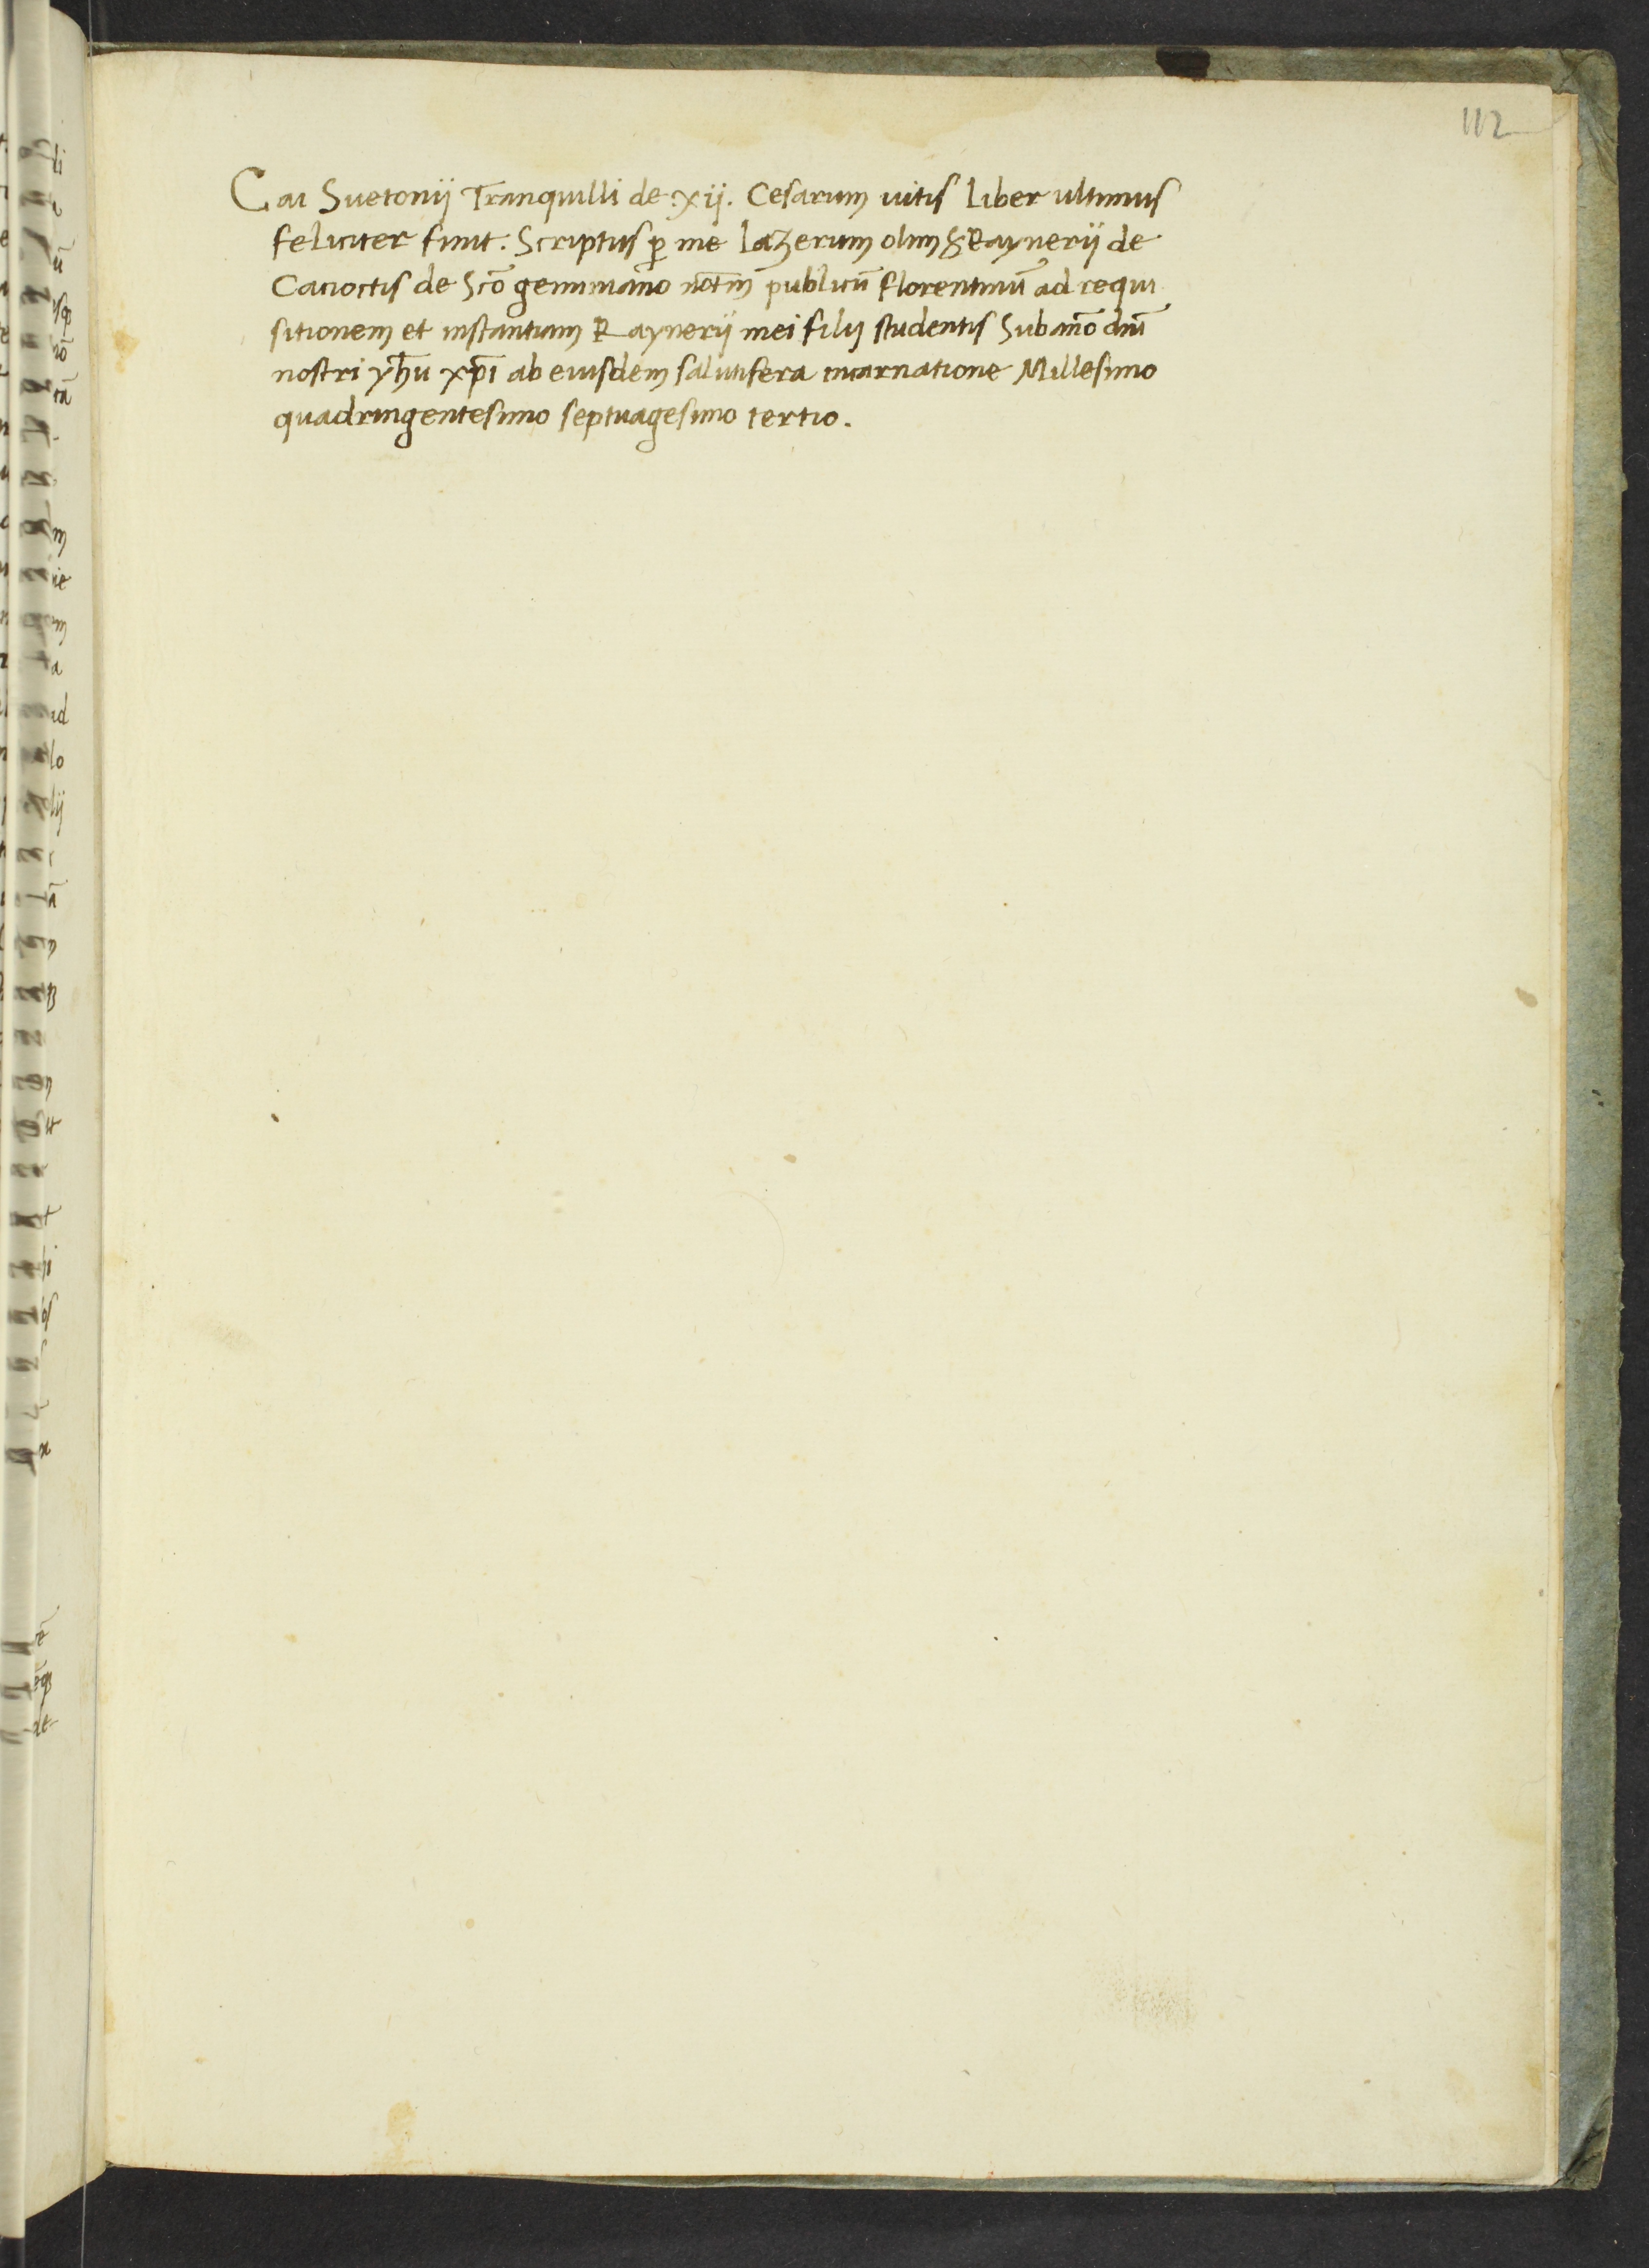 112
Cai Suetonij Tranquilli de .xij. Cesarum uitis liber ultimus
feliciter finit. Scriptus p̄ me lazerum olim S Raynerij de
Caciottis de Sc̄o geminiano not̄m publicū florentinū ad requi
sitionem et instantiam Raynerij mei filij studentis Sub an̄o dn̄i
nostri yh̄u xp̄i ab eiusdem salutifera incarnatione Millesimo
quadringentesimo septuagesimo tertio.